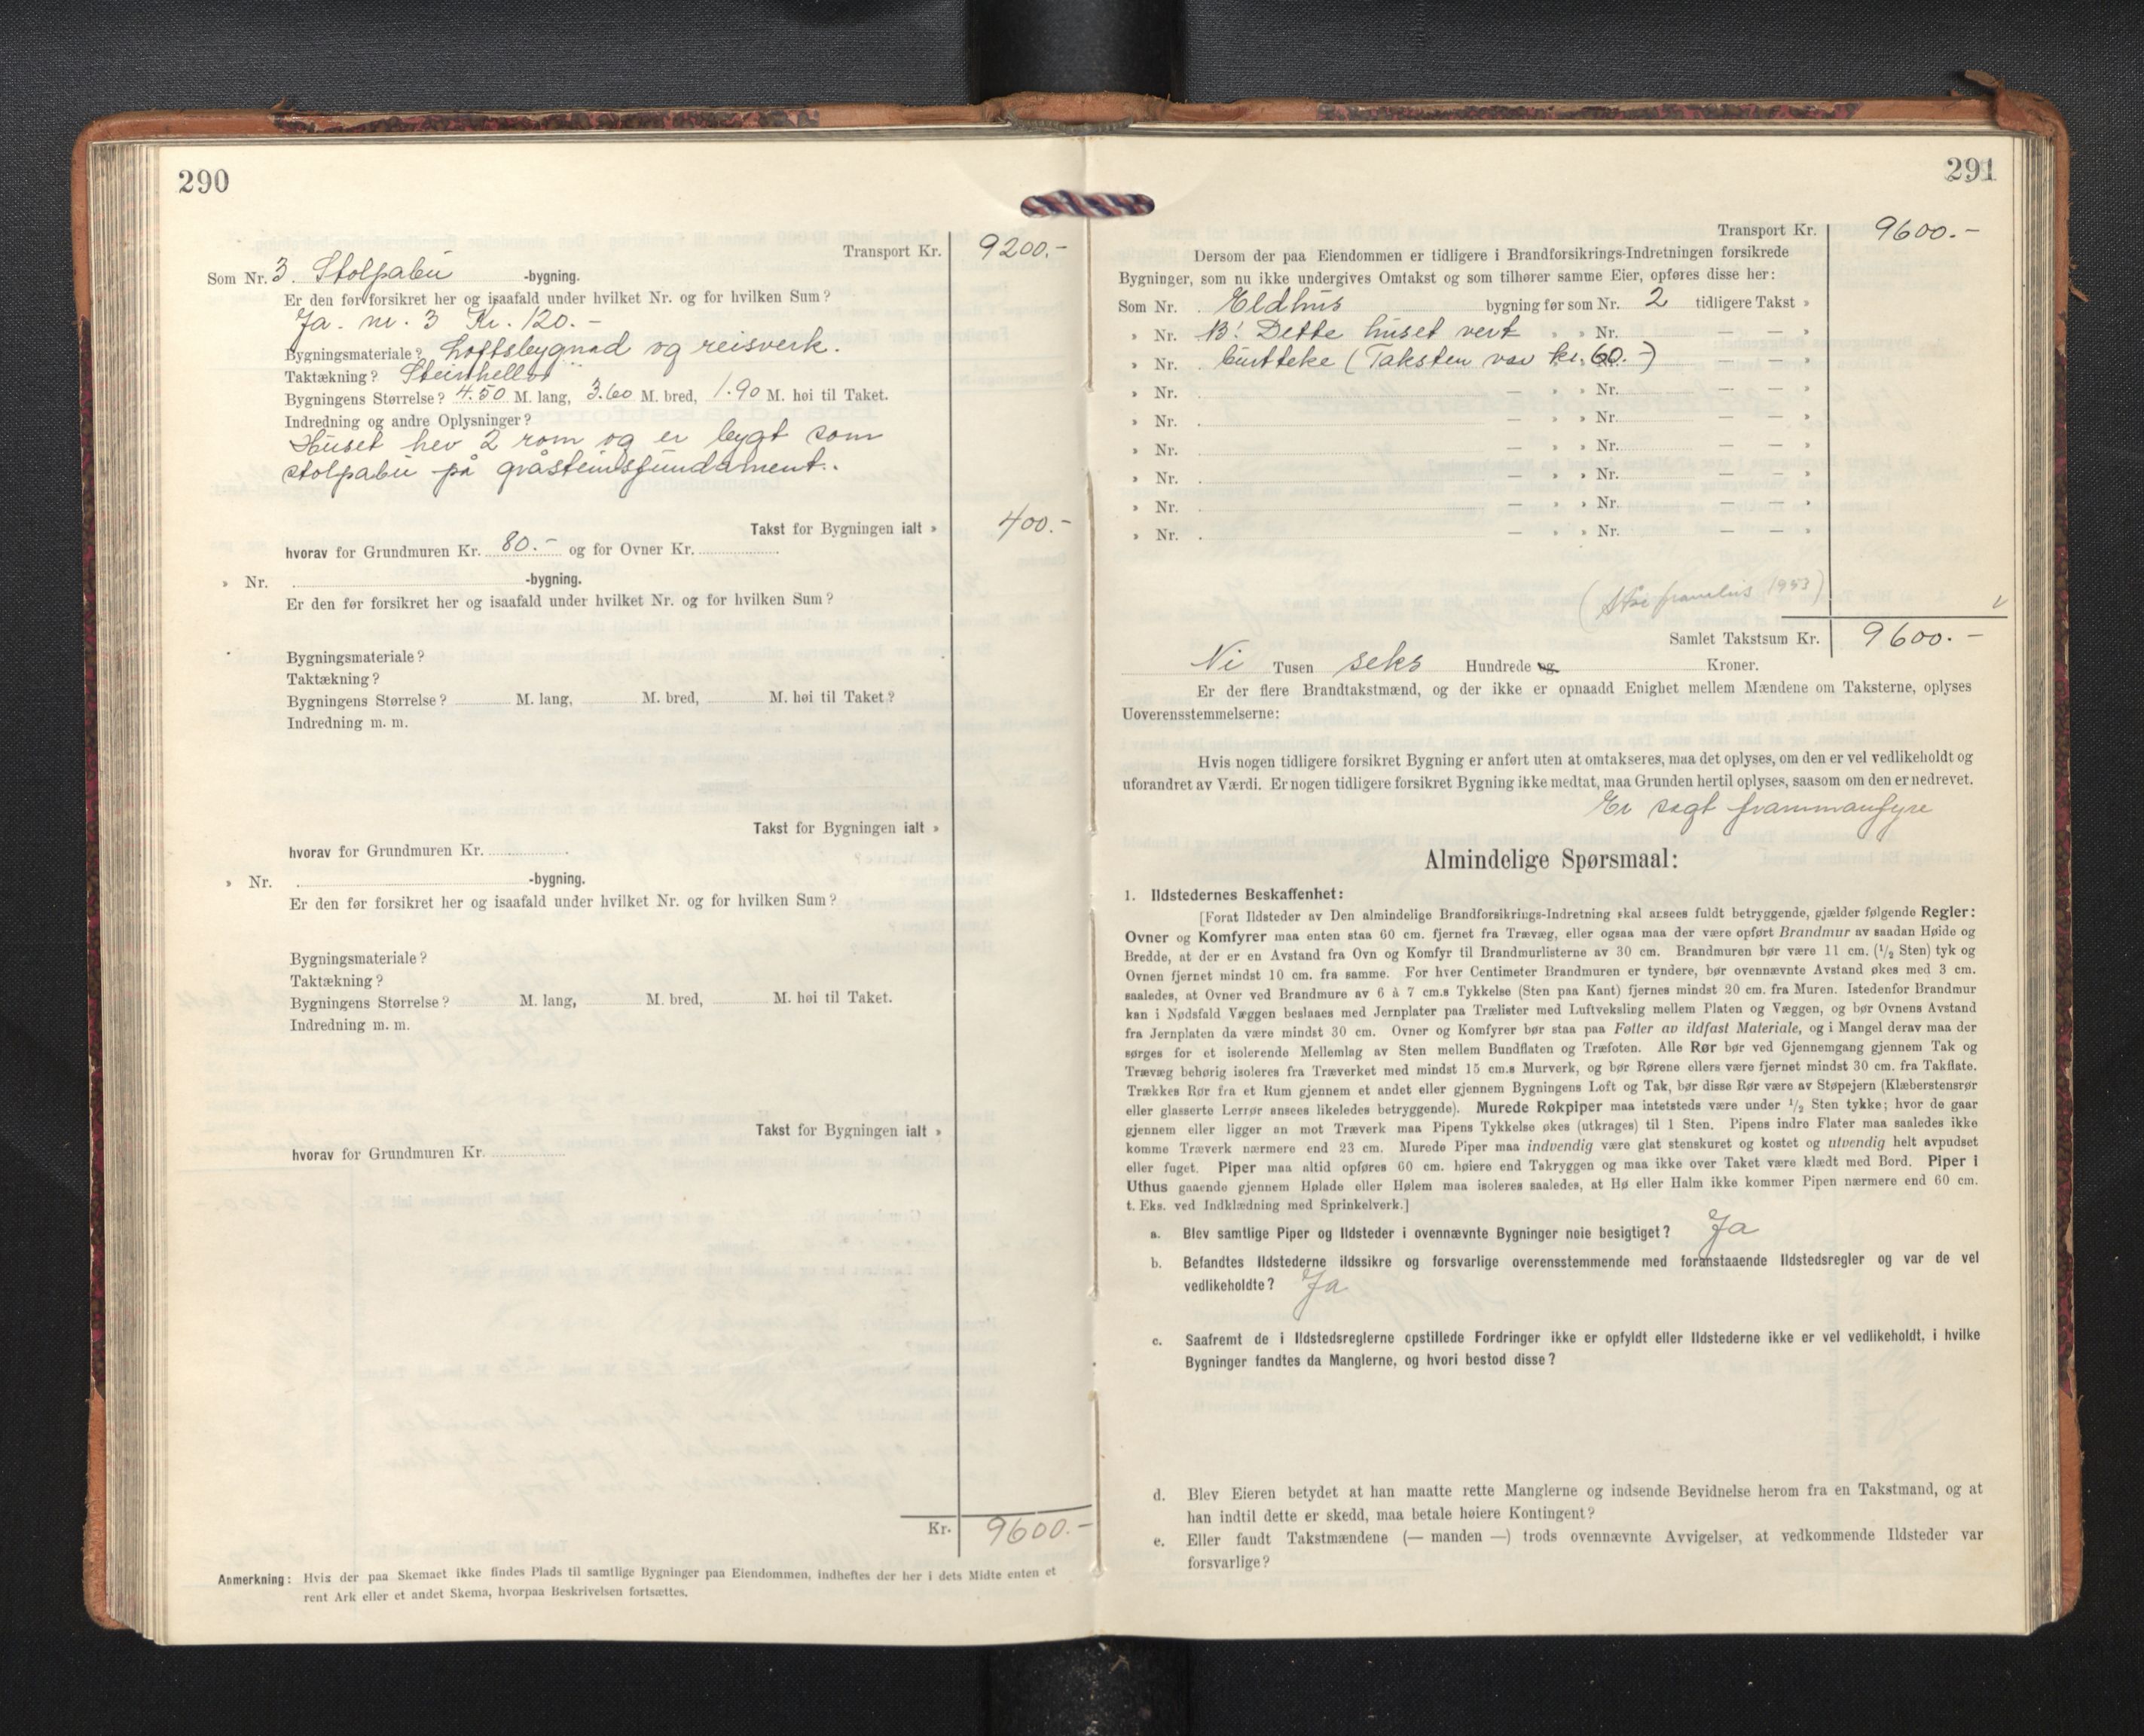 290
Transport Kr. 9200.-
Som Nr. 3. Stolpabu -bygning.
Er den før forsikret her og isaafald under hvilket Nr. og for hvilken Sum?
Ja. nr. 3 Kr. 120.-
Bygningsmateriale? Loftsbygnad og reisverk.
Taktækning? Steinheller
Bygningens Størrelse? 4.50 M. lang, 3.60 M. bred, 1.90 M. høi til Taket.
Indredning og andre Oplysninger?
Huset hev 2 rom og er bygt som
stolpabu på gråsteinsfundament.
Takst for Bygningen ialt » 400.-
hvorav for Grundmuren Kr. 80.- og for Ovner Kr.
» Nr. -bygning.
Er den før forsikret her og isaafald under hvilket Nr. og for hvilken Sum?
Bygningsmateriale?
Taktækning?
Bygningens Størrelse? M. lang, M. bred, M. høi til Taket?
Indredning m. m.
Takst for Bygningen ialt »
hvorav for Grundmuren Kr.
» Nr. -bygning.
Er den før forsikret her og isaafald under hvilket Nr. og for hvilken Sum?
Bygningsmateriale?
Taktækning?
Bygningens Størrelse? M. lang, M. bred, M. høi til Taket.
Indredning m. m.
Takst for Bygningen ialt »
hvorav for Grundmuren Kr.
Kr. 9600.-
Anmerkning: Hvis der paa Skemaet ikke findes Plads til samtlige Bygninger paa Eiendommen, indheftes der her i dets Midte enten et
rent Ark eller et andet Skema, hvorpaa Beskrivelsen fortsættes.
291
Transport Kr. 9600.-
Dersom der paa Eiendommen er tidligere i Brandforsikrings-Indretningen forsikrede
Bygninger, som nu ikke undergives Omtakst og som tilhører samme Eier, opføres disse her:
Som Nr. Eldhus bygning før som Nr. 2 tidligere Takst »
» Nr. NB! Dette huset vert » » Nr. — — »
» Nr. burtteke (Taksten var kr. 60.-)
» Nr. . — » » Nr. — — »
» Nr. . — » » Nr. — — »
» Nr. . — » » Nr. — — »
» Nr. . — » » Nr. — — »
» Nr. . — » » Nr. — — »
» Nr. . — » » Nr. — — »
1953)
Samlet Takstsum Kr. 9600.-
Ni Tusen seks Hundrede og Kroner.
Er der flere Brandtakstmænd, og der ikke er opnaadd Enighet mellem Mændene om Taksterne, oplyses
Uoverensstemmelserne:
Hvis nogen tidligere forsikret Bygning er anført uten at omtakseres, maa det oplyses, om den er vel vedlikeholdt og
uforandret av Værdi. Er nogen tidligere forsikret Bygning ikke medtat, maa Grunden hertil oplyses, saasom om den er nedrevet.
Er sagt frammanfyre
Almindelige Spørsmaal:
1. Ildstedernes Beskaffenhet:
[Forat Ildsteder av Den almindelige Brandforsikrings-Indretning skal ansees fuldt betryggende, gjælder følgende Regler:
Ovner og Komfyrer maa enten staa 60 cm. fjernet fra Trævæg, eller ogsaa maa der være opført Brandmur av saadan Høide og
Bredde, at der er en Avstand fra Ovn og Komfyr til Brandmurlisterne av 30 cm. Brandmuren bør være 11 cm. (1/2 Sten) tyk og
Ovnen fjernet mindst 10 cm. fra samme. For hver Centimeter Brandmuren er tyndere, bør ovennævnte Avstand økes med 3 cm.
saaledes, at Ovner ved Brandmure av 6 à 7 cm.s Tykkelse (Sten paa Kant) fjernes mindst 20 cm. fra Muren. Istedenfor Brandmur
kan i Nødsfald Væggen beslaaes med Jernplater paa Trælister med Luftveksling mellem Platen og Væggen, og bør Ovnens Avstand
fra Jernplaten da være mindst 30 cm. Ovner og Komfyrer bør staa paa Føtter av ildfast Materiale, og i Mangel derav maa der
sørges for et isolerende Mellemlag av Sten mellem Bundflaten og Træfoten. Alle Rør bør ved Gjennemgang gjennem Tak og
Trævæg behørig isoleres fra Træverket med mindst 15 cm.s Murverk, og bør Rørene ellers være fjernet mindst 30 cm. fra Takflate.
Trækkes Rør fra et Rum gjennem et andet eller gjennem Bygningens Loft og Tak, bør disse Rør være av Støpejern (Klæberstensrør
eller glasserte Lerrør ansees likeledes betryggende). Murede Røkpiper maa intetsteds være under 1/2 Sten tykke; hvor de gaar
gjennem eller ligger an mot Træverk maa Pipens Tykkelse økes (utkrages) til 1 Sten. Pipens indre Flater maa saaledes ikke
komme Træverk nærmere end 23 cm. Murede Piper maa indvendig være glat stenskuret og kostet og utvendig helt avpudset
eller fuget. Piper maa altid opføres 60 cm. høiere end Takryggen og maa ikke over Taket være klædt med Bord. Piper i
Uthus gaaende gjennem Hølade eller Hølem maa isoleres saaledes, at Hø eller Halm ikke kommer Pipen nærmere end 60 cm.
t. Eks. ved Indklædning med Sprinkelverk.]
a. Blev samtlige Piper og Ildsteder i ovennævnte Bygninger nøie besigtiget? Ja
b. Befandtes Ildstederne ildssikre og forsvarlige overensstemmende med foranstaaende Ildstedsregler og var de vel
vedlikeholdte? Ja
c. Saafremt de i Ildstedsreglerne opstillede Fordringer ikke er opfyldt eller Ildstederne ikke er vel vedlikeholdt, i hvilke
Bygninger fandtes da Manglerne, og hvori bestod disse?
d. Blev Eieren betydet at han maatte rette Manglerne og indsende Bevidnelse herom fra en Takstmand, og at
han indtil dette er skedd, maa betale høiere Kontingent?
e. Eller fandt Takstmændene (— manden —) trods ovennævnte Avvigelser, at vedkommende Ildsteder var
forsvarlige?